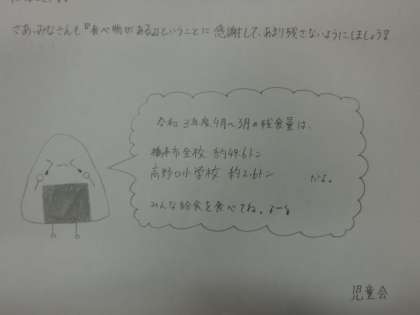 さあ、みなさんも『食べ物がある』ということに感謝して、あまり残さないようにしましょう！
令和3年度4月〜3月の給食量は、
橋本市全校 約49.6トン
高野口小学校 約2.6トン だよ。
みんな給食を食べてね。
児童会